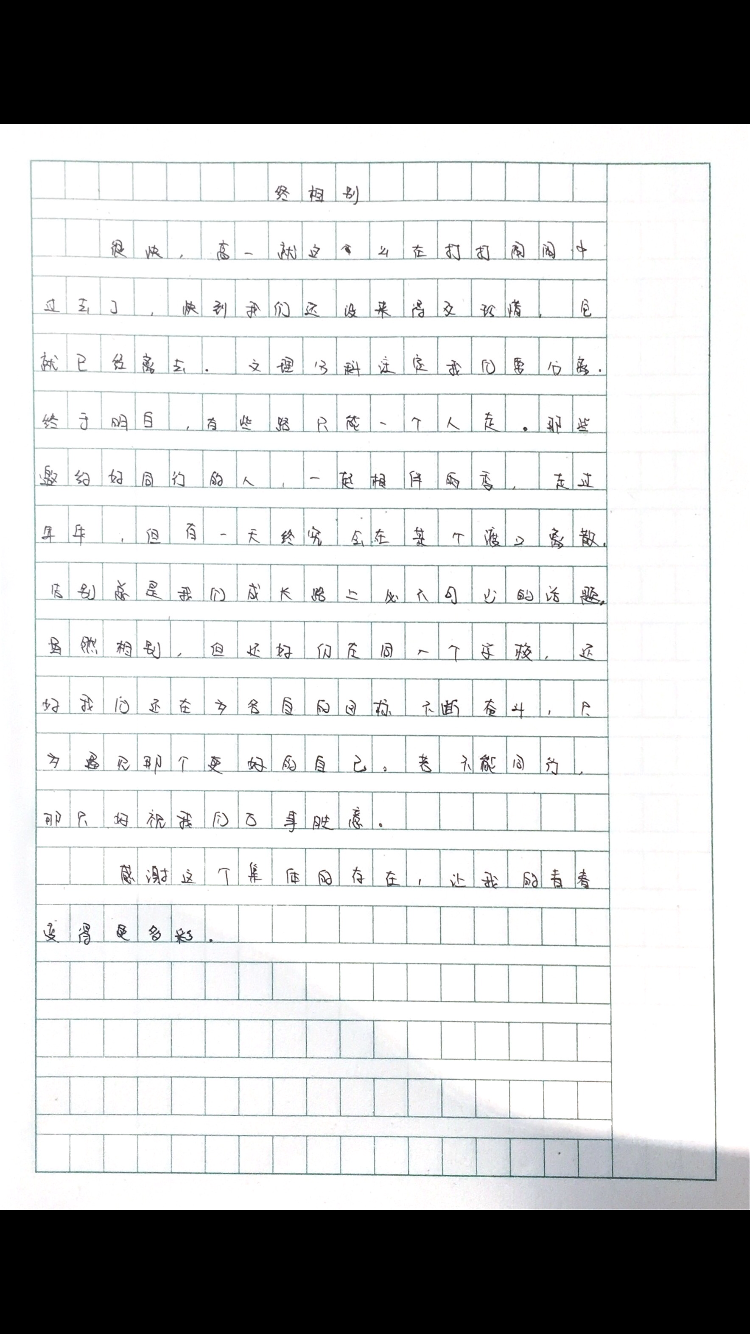 终相别
很快，高一就这么在打打闹闹中
过去了，快到我们还没来得及珍惜，它
就已经离去。文理分科注定我们要分离。
终于明白，有些路只能一个人走。那些
邀约好同行的人，一起相伴雨季，走过
年年，但有一天终究会在某个渡口离散。
告别总是我们成长路上必不可少的话题。
虽然相别，但还好仍在同一个学校，还
好我们还在为各自的目标不断奋斗，只
为遇见那个更好的自己。若不能同行，
那只好祝我们万事胜意。
感谢这个集体的存在，让我的青春
变得更多彩。